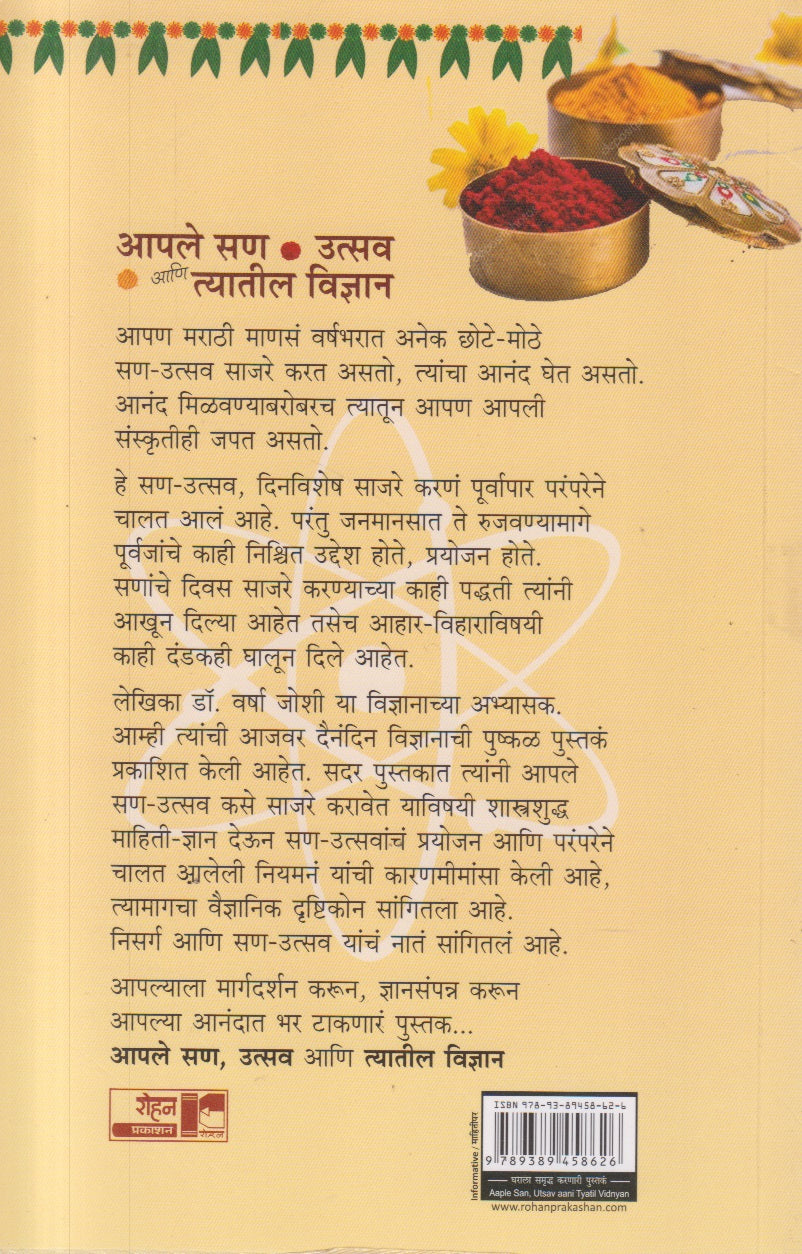 आपले सण • उत्सव
आणि त्यातील विज्ञान
आपण मराठी माणसं वर्षभरात अनेक छोटे-मोठे
सण-उत्सव साजरे करत असतो, त्यांचा आनंद घेत असतो.
आनंद मिळवण्याबरोबरच त्यातून आपण आपली
संस्कृतीही जपत असतो.
हे सण-उत्सव, दिनविशेष साजरे करणं पूर्वापार परंपरेने
चालत आलं आहे. परंतु जनमानसात ते रुजवण्यामागे
पूर्वजांचे काही निश्चित उद्देश होते, प्रयोजन होते.
सणांचे दिवस साजरे करण्याच्या काही पद्धती त्यांनी
आखून दिल्या आहेत तसेच आहार-विहाराविषयी
काही दंडकही घालून दिले आहेत.
लेखिका डॉ. वर्षा जोशी या विज्ञानाच्या अभ्यासक.
आम्ही त्यांची आजवर दैनंदिन विज्ञानाची पुष्कळ पुस्तकं
प्रकाशित केली आहेत. सदर पुस्तकात त्यांनी आपले
सण-उत्सव कसे साजरे करावेत याविषयी शास्त्रशुद्ध
माहिती-ज्ञान देऊन सण-उत्सवांचं प्रयोजन आणि परंपरेने
चालत आलेली नियमनं यांची कारणमीमांसा केली आहे,
त्यामागचा वैज्ञानिक दृष्टिकोन सांगितला आहे.
निसर्ग आणि सण-उत्सव यांचं नातं सांगितलं आहे.
आपल्याला मार्गदर्शन करून, ज्ञानसंपन्न करून
आपल्या आनंदात भर टाकणारं पुस्तक...
आपले सण, उत्सव आणि त्यातील विज्ञान
रोहन
प्रकाशन
रोहन
Informative / माहितीपर
ISBN 978-93-89458-62-6
9 789389 458626
घराला समृद्ध करणारी पुस्तकं
Aaple San, Utsav aani Tyatil Vidnyan
www.rohanprakashan.com